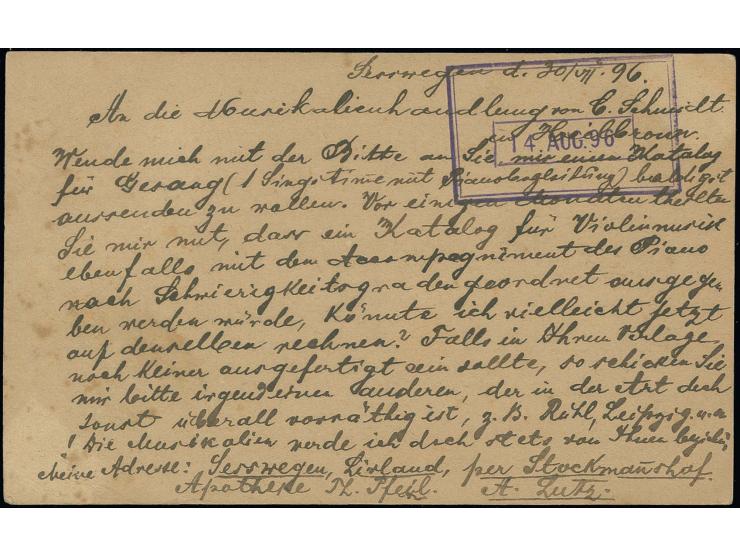 Sesswegen d. 30/VII. 96.
An die Musikalienhandlung von C. Schmidt
in Heilbronn.
14 AUG 96
Wende mich mit der Bitte an Sie, mir einen Katalog
für Gesang (1 Singstimme mit Pianobegleitung) baldigst
aussenden zu wollen. Vor einigen Monaten theilten
Sie mir mit, dass ein Katalog für Violinmusik
ebenfalls mit dem Accompagniment des Piano
nach Schwierigkeitsgraden geordnet ausgege-
ben werden würde, könnte ich vielleicht jetzt
auf denselben rechnen? Falls in Ihrem Verlage
noch keiner ausgefertigt sein sollte, so schicken Sie
mir bitte irgend einen anderen, der in der Art doch
sonst überall vorräthig ist, z. B. Rühl, Leipzig u. a.
! Die Musikalien werde ich doch stets von Ihnen
Meine Adresse: Sesswegen, Livland, per Stockmannshof.
Apotheke Th. Pfeil. A. Lutz.